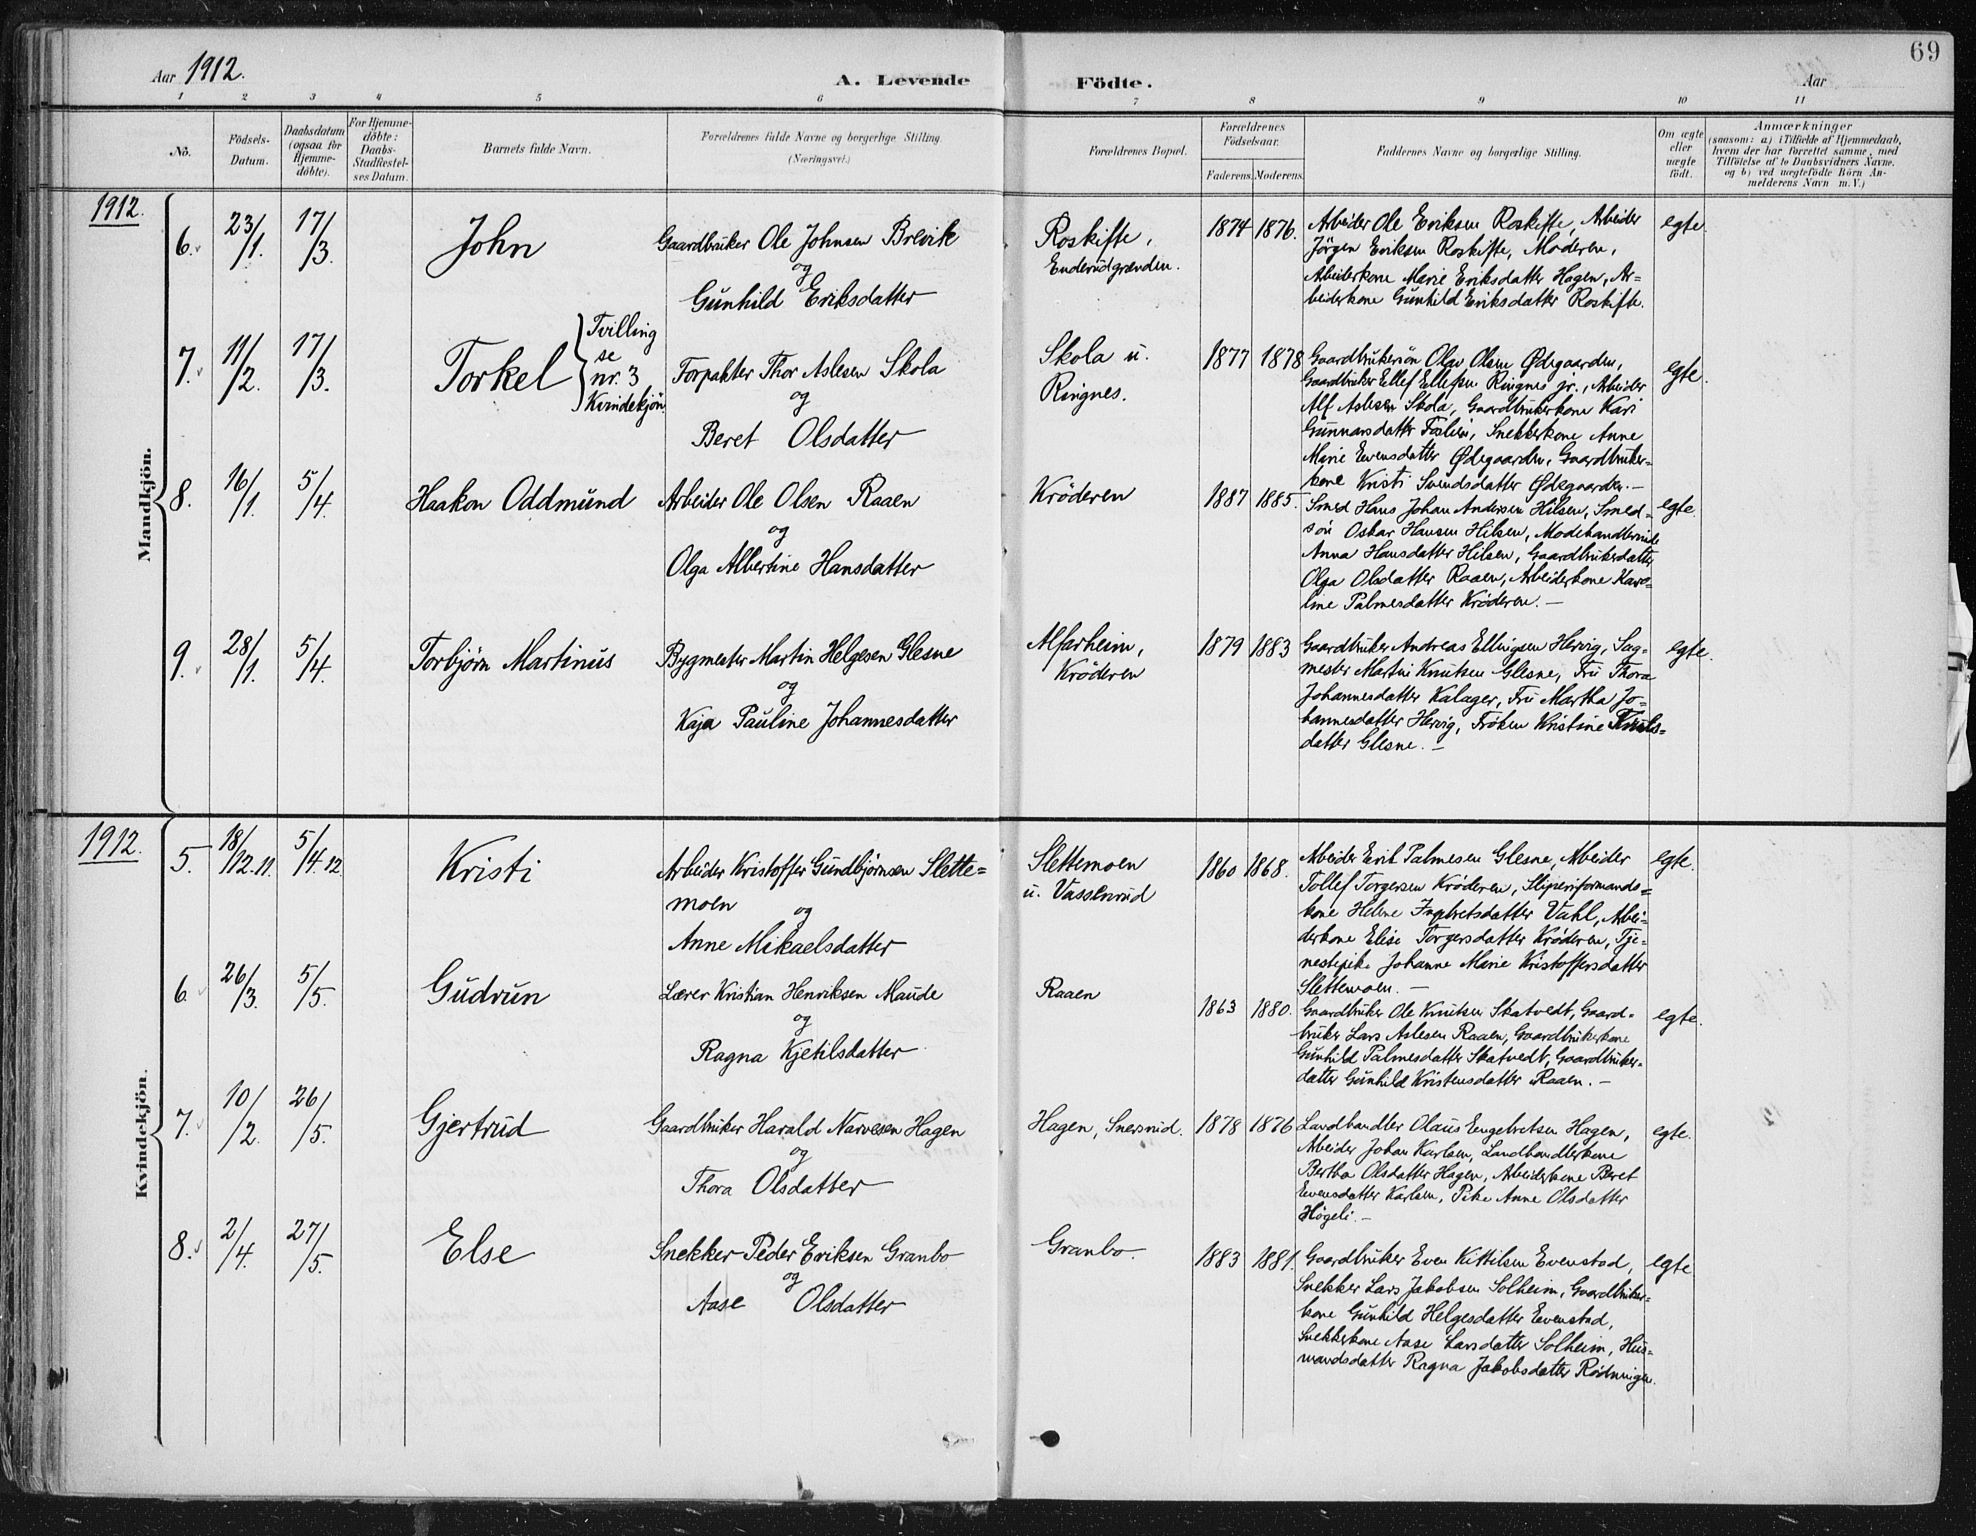 69
Aar 1912.
A. Levende Födte.
Aar
1 2 3 4 5 6 7 8 9 10 11
No.
Födsels-
Datum.
Daabsdatum
(ogsaa for
Hjemme-
döbte).
For Hjemme-
döbte:
Daabs-
Stadfæstel-
ses Datum.
Barnets fulde Navn.
Forældrenes fulde Navne og borgerlige Stilling.
(Næringsvei.)
Forældrenes Bopæl.
Forældrenes
Födselsaar.
Faderens. Moderens.
Faddernes Navne og borgerlige Stilling.
Om ægte
eller
uægte
födt.
Anmærkninger
(saasom: a) i Tilfælde af Hjemmedaab,
hvem der har forrettet samme, med
Tilföielse af to Daabsvidners Navne.
og b) ved uægtefödte Börn An-
melderens Navn m. V.)
Mandkjön.
1912.
6. 23/1. 17/3. John
Gaardbruker Ole Johnsen Brevik
og
Gunhild Eriksdatter
Roskifte,
Enderudgrænden.
1874 1876.
Arbeider Ole Eriksen Roskifte, Arbeider
Jörgen Eriksen Roskifte, Moderen,
Arbeiderkone Marie Eriksdatter Hagen, Ar-
beiderkone Gunhild Eriksdatter Roskifte.
egte.
7. 11/2. 17/3. Torkel
Tvilling
se
nr. 3
Kvindekjön
Forpakter Thor Aslesen Skola
og
Beret Olsdatter
Skola u.
Ringnes.
1877 1878
Gaardbrukersön Olav Olsen Ødegaarden,
Gaardbruker Ellef Ellefsen Ringnes jr., Arbeider
Alf Aslesen Skola, Gaardbrukerkone Kari
Gunnarsdatter Foslien, Snekkerkone Anne
Marie Evensdatter Ødegaarden, Gaardbruker-
kone Kristi Svendsdatter Ødegaarden. —
egte.
8. 16/1. 5/4. Haakon Oddmund
Arbeider Ole Olsen Raaen
og
Olga Albertine Hansdatter
Kröderen
1887 1885.
Smed Hans Johan Andersen Hilsen, Smed-
sön Oskar Hansen Hilsen, Modehandlerinde
Anna Hansdatter Hilsen, Gaardbrukerdatter
Olga Olsdatter Raaen, Arbeiderkone Karo-
line Palmesdatter Kröderen. —
egte.
9. 28/1. 5/4. Torbjörn Martinus
Bygmester Martin Helgesen Glesne
og
Kaja Pauline Johannesdatter
Alfarheim,
Kröderen
1879 1883
Gaardbruker Andreas Ellingsen Hervig, Sag-
mester Martin Knutsen Glesne, Fru Thora
Johannesdatter Kalager, Fru Martha Jo-
hannesdatter Hervig, Fröken Kristine Knuts-
datter Glesne. —
egte.
Kvindekjön.
1912.
5. 18/12.11. 5/4.12 Kristi
Arbeider Kristoffer Gundbjörnsen Slette-
moen
og
Anne Mikaelsdatter
Slettemoen
u. Vassenrud
1860 1868.
Arbeider Erik Palmesen Glesne, Arbeider
Tollef Torgersen Kröderen, Sliperiformands-
kone Helene Ingebretsdatter Vahl, Arbei-
derkone Elise Torgersdatter Kröderen, Tje-
nestepike Johanne Marie Kristoffersdatter
Slettemoen. —
egte.
6. 26/3. 5/5. Gudrun
Lærer Kristian Henriksen Maude
og
Ragna Kjetilsdatter
Raaen
1863 1880.
Gaardbruker Ole Knutsen Skatvedt, Gaard-
bruker Lars Aslesen Raaen, Gaardbrukerkone
Gunhild Palmesdatter Skatvedt, Gaardbruker-
datter Gunhild Kristensdatter Raaen. —
egte.
7. 10/2. 26/5. Gjertrud
Gaardbruker Harald Narvesen Hagen
og
Thora Olsdatter
Hagen, Snersrud.
1878 1876
Landhandler Olaus Engebretsen Hagen,
Arbeider Johan Karlsen, Landhandlerkone
Bertha Olsdatter Hagen, Arbeiderkone Beret
Evensdatter Karlsen, Pike Anne Olsdatter
Högeli. —
egte.
8. 2/4. 27/5. Else
Snekker Peder Eriksen Granbo
og
Aase Olsdatter
Granbo.
1883 1881.
Gaardbruker Even Kittilsen Evenstad,
Snekker Lars Jakobsen Solheim, Gaardbruker-
kone Gunhild Helgesdatter Evenstad,
Snekkerkone Aase Larsdatter Solheim, Hus-
mandsdatter Ragna Jakobsdatter Rödningen.
egte